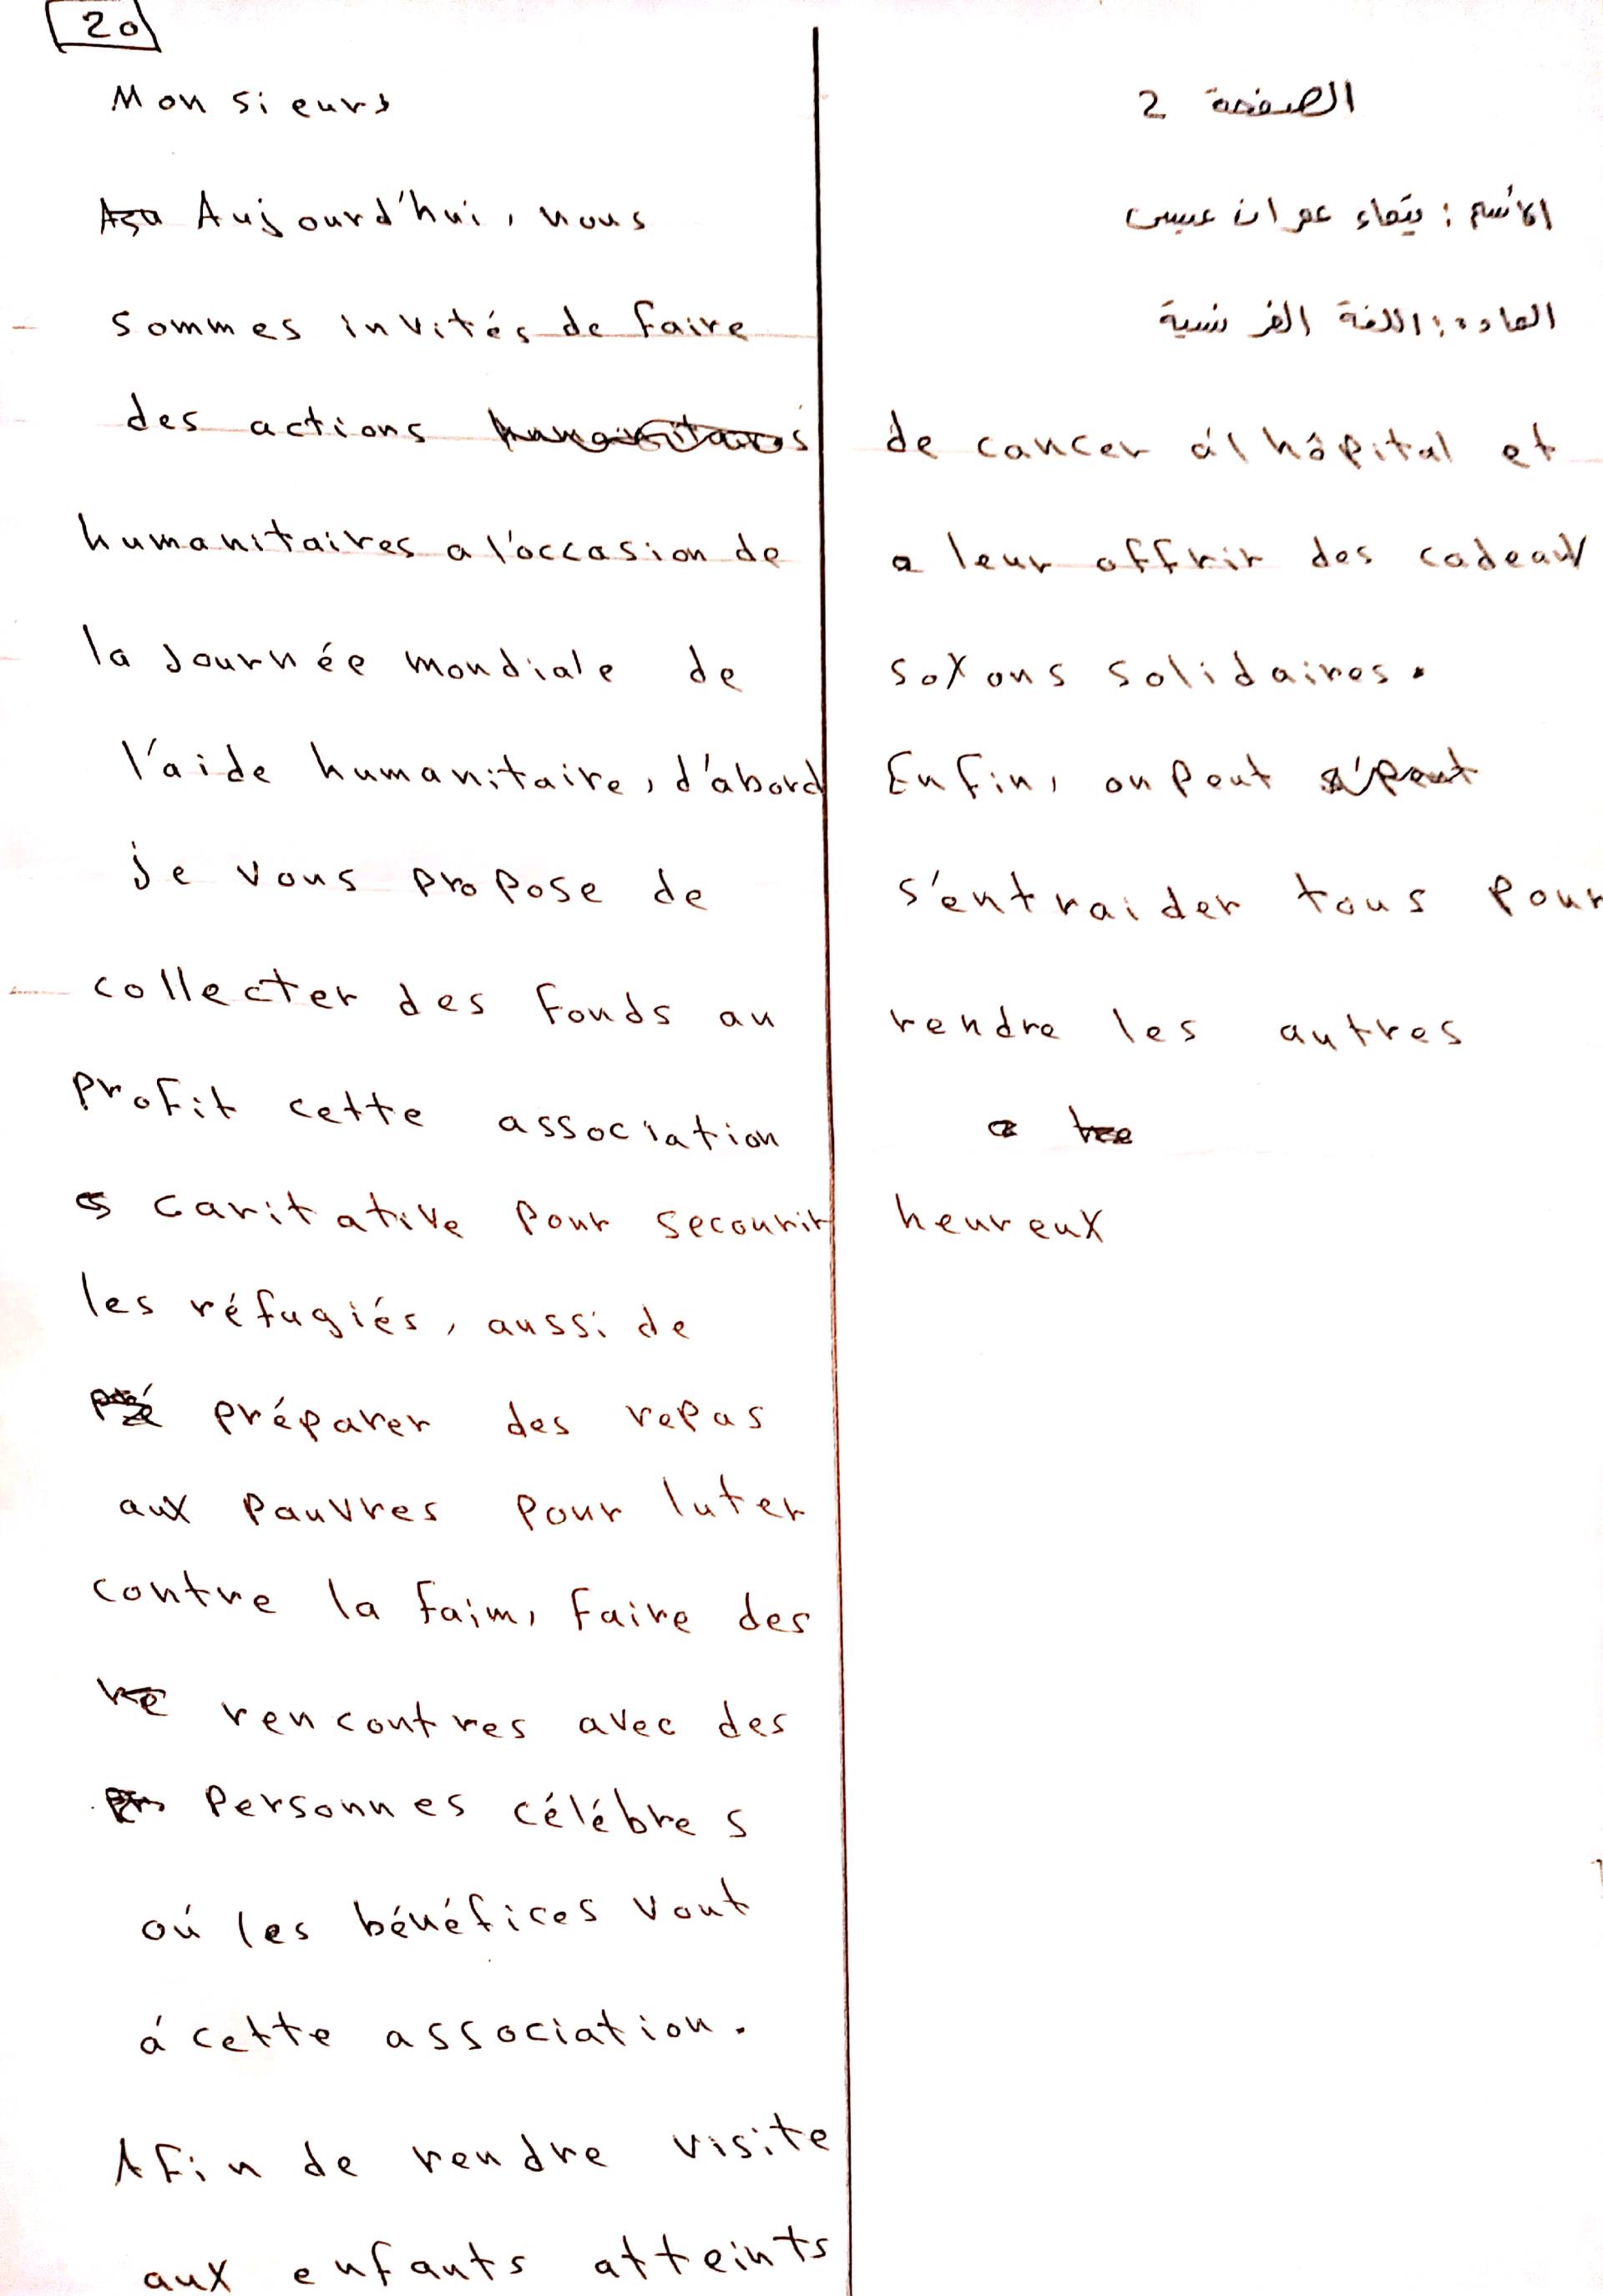 20
Monsieurs
Aujourd'hui, nous
sommes invités de faire
des actions
humanitaires a l'occasion de
la Journée mondiale de
l'aide humanitaire, d'abord
je vous propose de
collecter des fonds au
profit cette association
caritative pour secourir
les réfugiés, aussi de
préparer des repas
aux pauvres pour luter
contre la faim, faire des
rencontres avec des
personnes célébres
oú les bénéfices vont
á cette association.
Afin de rendre visite
aux enfants atteints
الصفحة 2
الأسم : عمران عيسى
المادة : اللغة الفرنسية
de cancer ál hôpital et
a leur offrir des cadeaux
soyons solidaires.
Enfin, on peut
s'entraider tous pour
rendre les autres
heureux